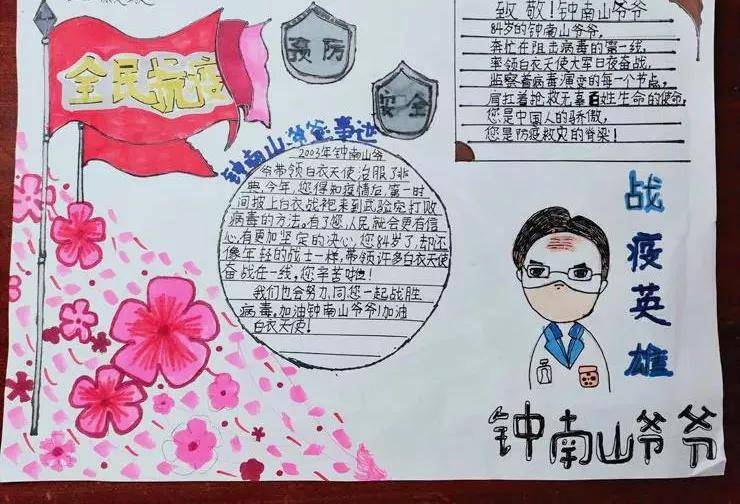 致敬!钟南山爷爷
84岁的钟南山爷爷,
奔忙在阻击病毒的第一线,
率领白衣天使大军日夜奋战,
监察着病毒演变的每一个节点,
肩扛着抢救无辜百姓生命的使命,
您是中国人的骄傲,
您是防疫救灾的脊梁!
全民抗疫
预防
安全
钟南山爷爷事迹
2003年钟南山爷
爷带领白衣天使治服了非
典,今年,您得知疫情后,第一时
间披上白衣战袍来到武验室打败
病毒的方法。有了您,人民就会更有信
心,有更加坚定的决心,您84岁了,却还
像年轻的战士一样,带领许多白衣天使
奋战在一线,您辛苦啦!
我们也会努力,同您一起战胜
病毒,加油钟南山爷爷!加油
白衣天使!
战疫英雄
钟南山爷爷